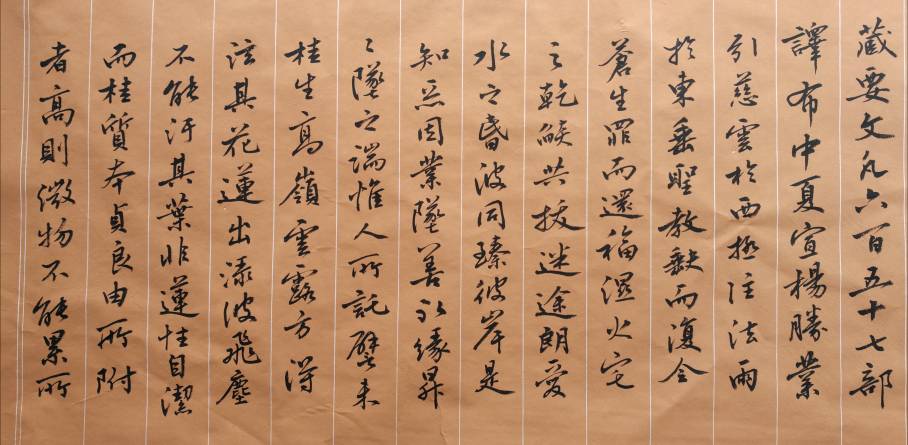 藏要文凡六百五十七部
譯布中夏宣楊勝業
引慈雲於西極注法雨
於東垂聖教缺而復全
蒼生罪而還福濕火宅
之乾焰共拔迷途朗愛
水之昏波同臻彼岸是
知惡因業墜善以緣昇
々墜之端惟人所託譬夫
桂生高嶺雲露方得
泫其花蓮出淥波飛塵
不能汙其葉非蓮性自潔
而桂質本貞良由所附
者高則微物不能累所